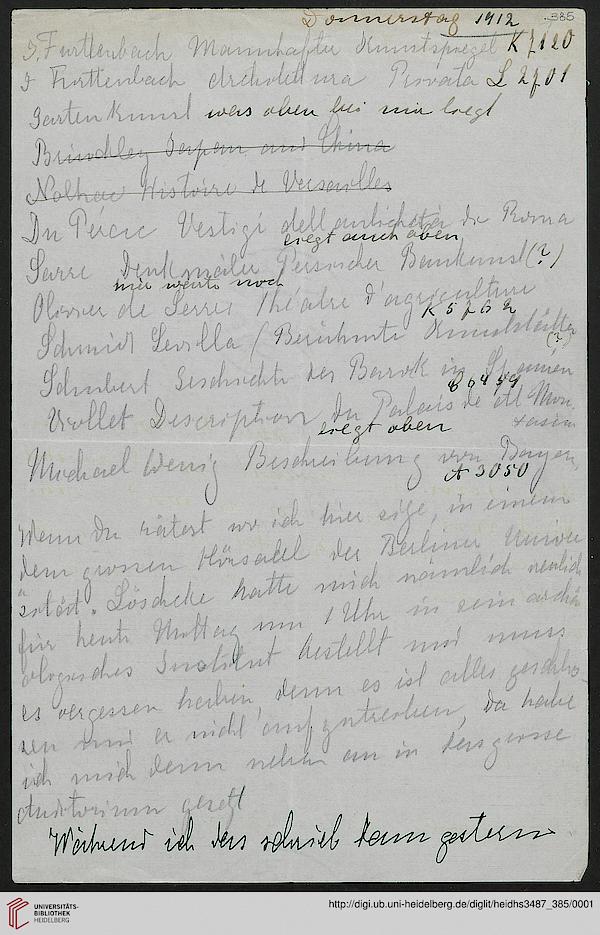 Donnerstag 1912 385
J. Furttenbach Mannhafter Kunstspiegel K 7120
J Furttenbach Architettura Privata L 2701
Gartenkunst was oben bei mir liegt
Brinckley Japan and China
Nolhac Histoire de Versailles
Du Pérac Vestigi dell antichità di Roma
liegt auch oben
Sarre Denkmäler Persischer Baukunst (?)
Olivier de Serres Théatre d'agriculture
Schmidt Sevilla (Berühmte Kunststätten
(?)
Schubert Geschichte des Barock in Spanien
Viollet Description du Palais de
liegt oben
Michael Wening Beschreibung von Bayern
A 3050
Wenn Du rätest wo ich hier sitze, in einem
dem grossen Hörsaal der Berliner Univer
sität. Löschcke hatte mich nämlich neulich
für heute Mittag um 1 Uhr in sein archä
ologisches Institut bestellt und muss
es vergessen haben, denn es ist alles geschlos-
sen und er nicht aufzutreiben, da habe
ich mich denn neben an in das grosse
Auditorium gesetzt
Während ich das schrieb kam gestern
UNIVERSITÄTS-
BIBLIOTHEK
HEIDELBERG
http://digi.ub.uni-heidelberg.de/diglit/heidhs3487_385/0001